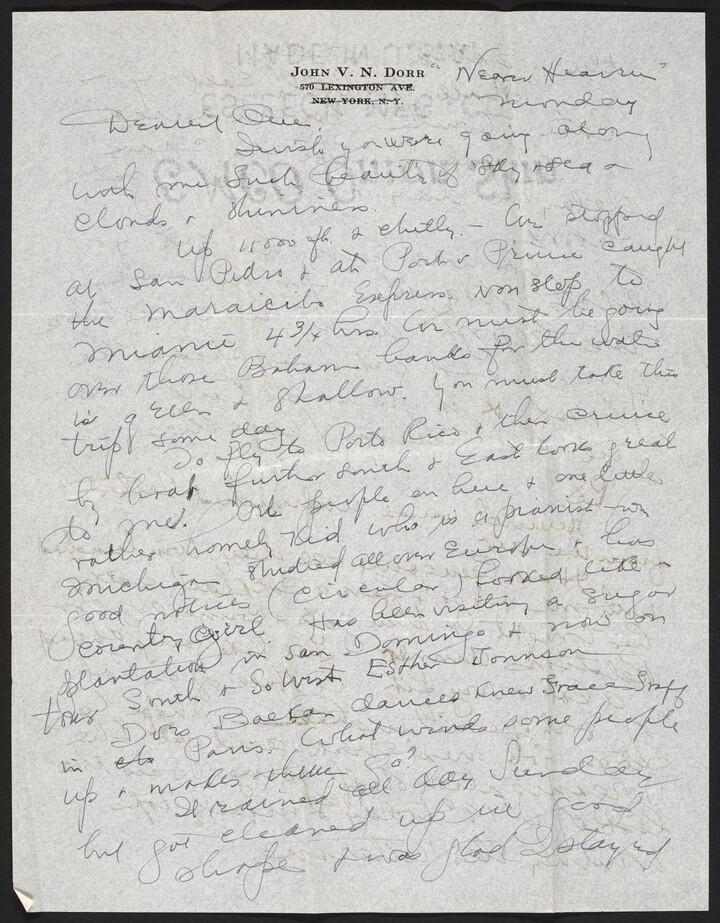 JOHN V. N. DORR "Near Heaven"
570 LEXINGTON AVE.
NEW YORK, N. Y. Monday
Dearest One.
I wish you were going along
with me Such beauty of sky & sea &
clouds & shininess.
Up 11000 ft. & chilly. — We stopped
at San Pedro & at Port o Prince caught
the Maraicibo Express non stop to
Miami 4 3/4 hrs. We must be going
over those Bahama Islands for the water
is green & shallow. You must take this
trip some day
To fly to Porto Rico & then cruise
by boat further South & East looks great
to me. people on here & one little
rather homely kid who is a pianist —
Michigan studied all over Europe & has
good notices (circular) Looked like a
country girl. Has been visiting a sugar
plantation in San Domingo & now on
tour South & So West Esther Jonnson
dances Knew Grace
in Paris. What winds some people
up & makes them go?
It rained all day Sunday
but got cleaned up in good
shape & was glad I stayed